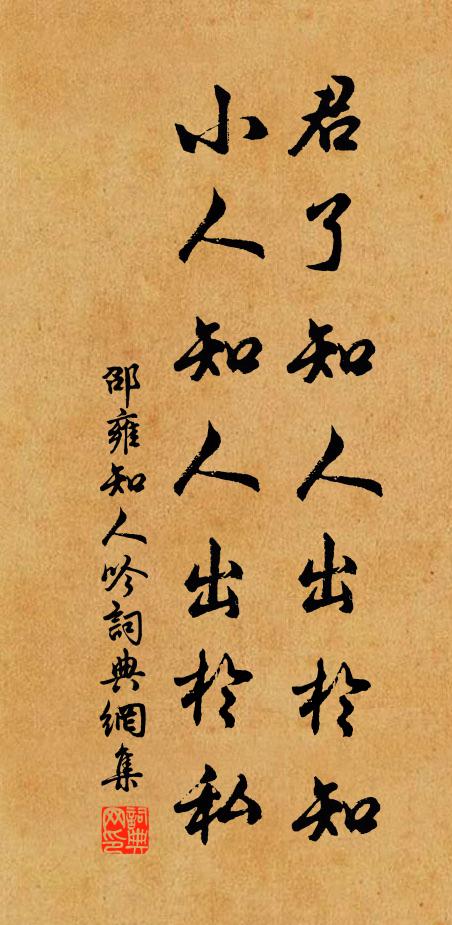 君了知人出於知
小人知人出於私
邵雍知人吟詞典網集
詞典
网印